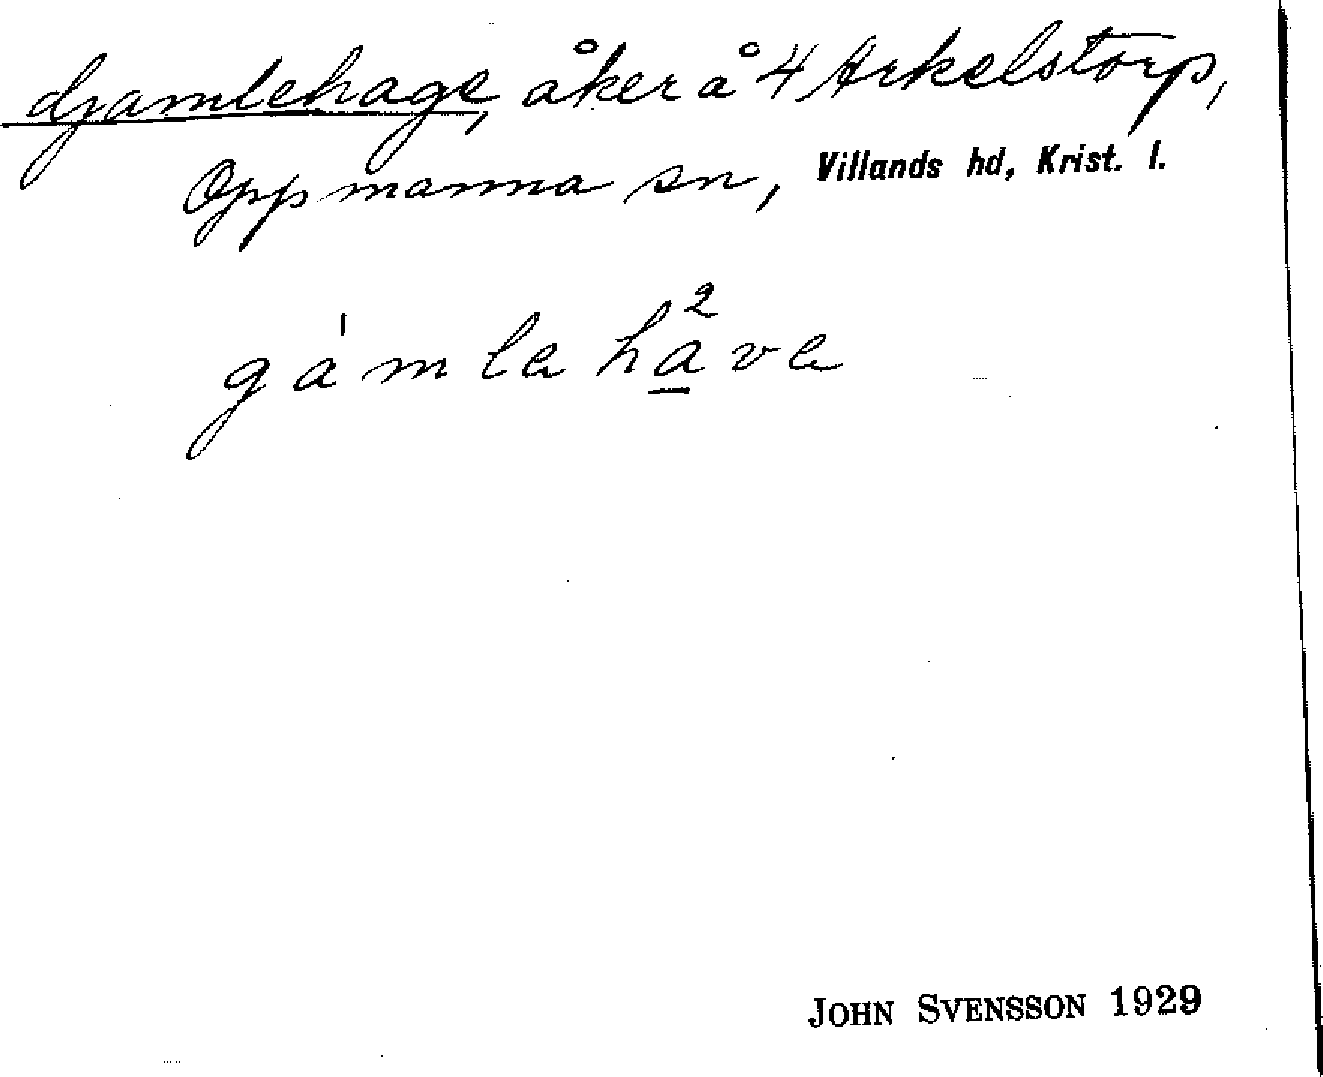 Gamlehage, åker å 4 Arkelstorp,
Oppmanna sn, Villands hd, Krist. l.
gamle have
JOHN SVENSSON 1929